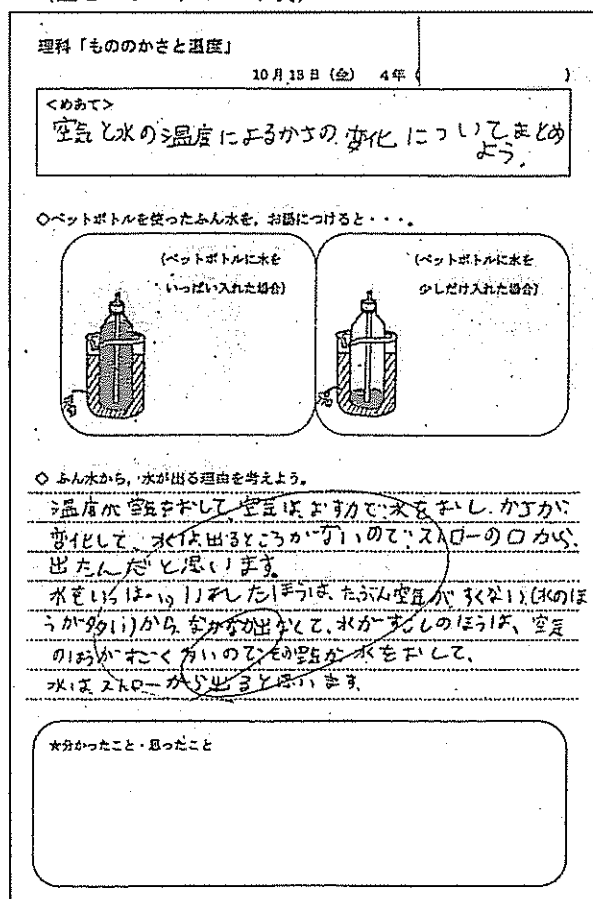 理科「もののかさと温度」
10月13日（金）　4年（　　　）
<めあて>
空気と水の温度によるかさの変化についてまとめ
よう。
◇ペットボトルを使ったふん水を、お湯につけると・・・。
（ペットボトルに水を
いっぱい入れた場合）
（ペットボトルに水を
少しだけ入れた場合）
◇ ふん水から、水が出る理由を考えよう。
温度が空気をおして、空気は、おす力で、水をおし、かさが、
変化して、水は、出るところがないので、ストローの口から、
出たんだと思います。
水をいっぱいいれたほうは、たぶん空気がすくない(水のほ
うが多い)から、なかなか出なくて、水がすこしのほうは、空気
のほうがすごく多いので、その空気が水をおして、
水は、ストローから出ると思います。
★分かったこと・思ったこと